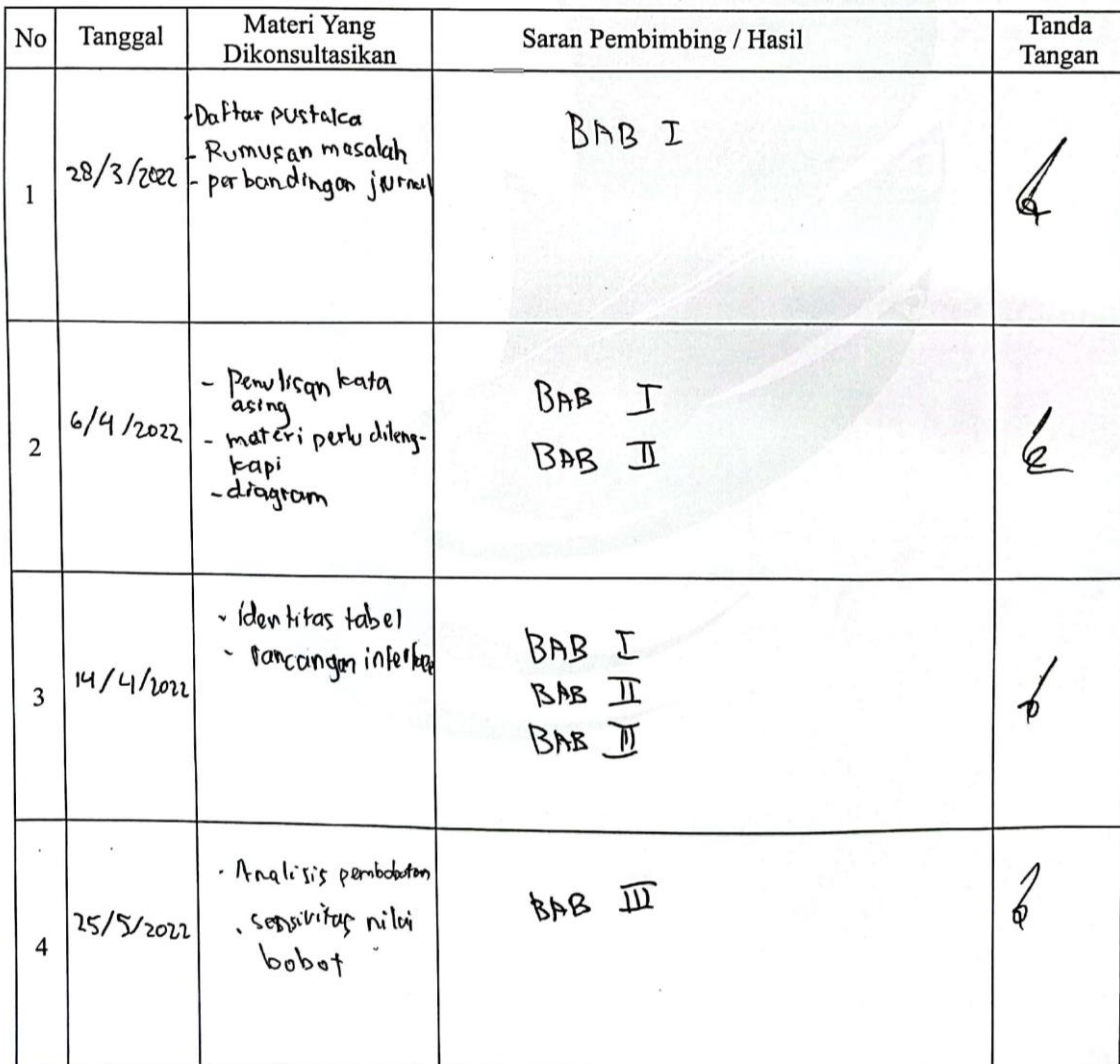 No Tanggal Materi Yang Dikonsultasikan Saran Pembimbing / Hasil Tanda Tangan
1
28/3/2022
- Daftar pustaka
- Rumusan masalah
- perbandingan jurnal
BAB I
2
6/4/2022
- Penulisan kata
asing
- materi perlu dileng-
kapi
- diagram
BAB I
BAB II
3
14/4/2022
- identitas tabel
- rancangan
BAB I
BAB II
BAB III
4
25/5/2022
- Analisis pembobotan
- sensivitas nilai
bobot
BAB III